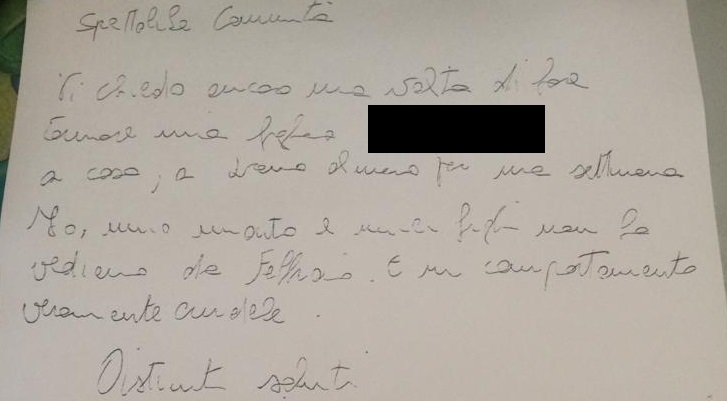 Spettabile Comunità
Vi chiedo ancora una volta di fare
tornare mia figlia
a casa, a almeno per una settimana
Io, mio marito e miei figli non la
vediamo da Febbraio. E un comportamento
veramente crudele.
Distinti saluti